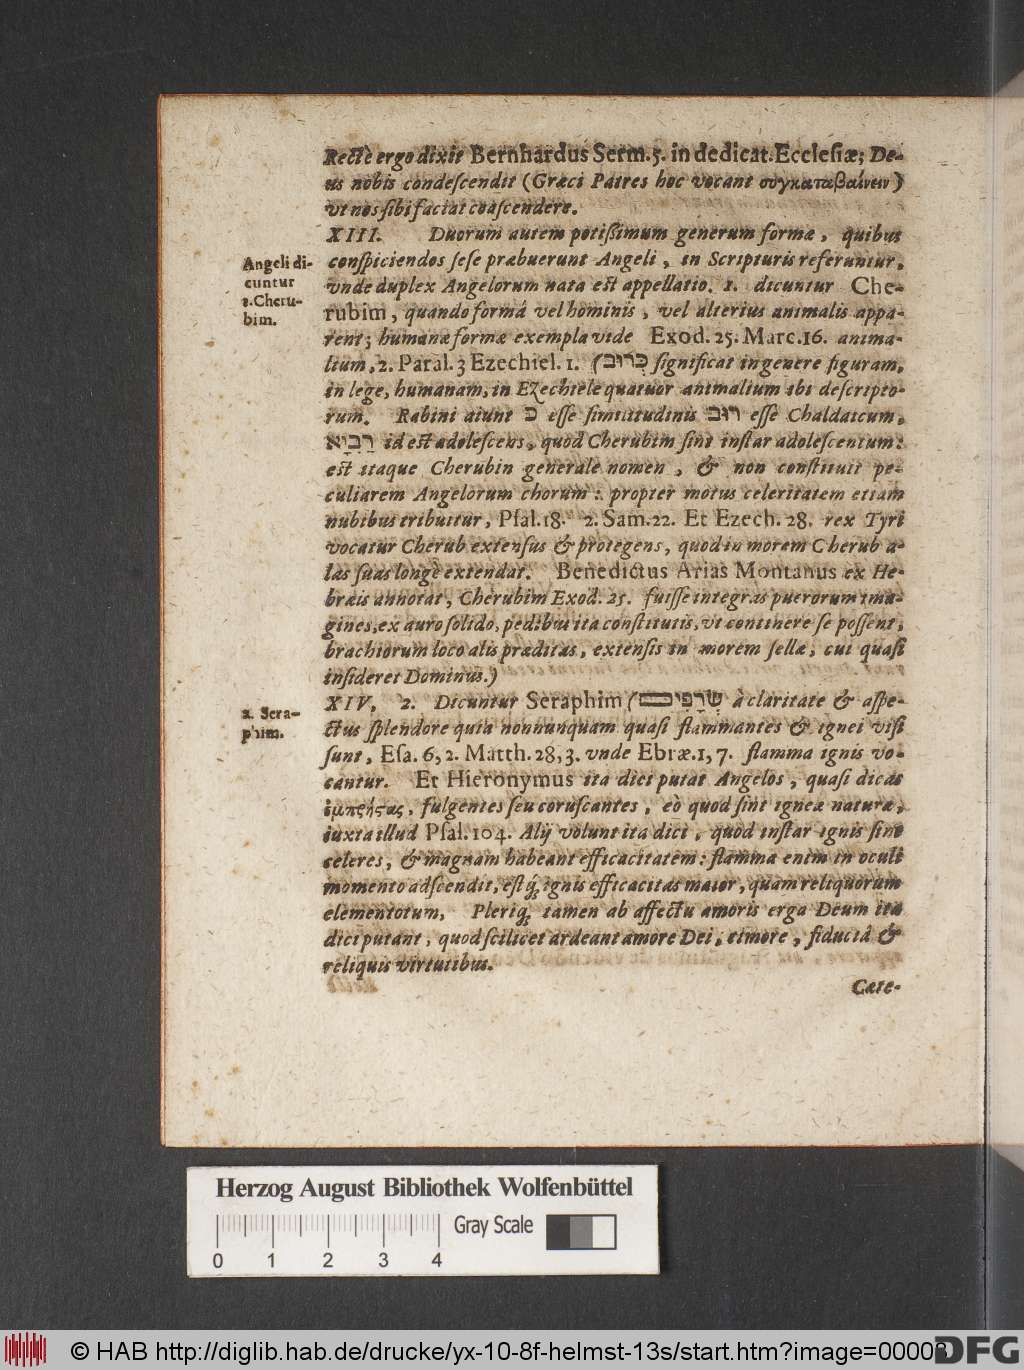 Rectè ergo dixit Bernhardus Serm. 5. in dedicat. Ecclesiæ; De-
us nobis condescendit (Græci Patres hoc vocant συγκαταβαίνειν)
vt nos sibi faciat coascendere.
XIII. Duorum autem potißimum generum formæ, quibus
Angeli di-
cuntur
1. Cheru-
bim.
conspiciendos sese præbuerunt Angeli, in Scripturis referuntur,
vnde duplex Angelorum nata est appellatio. 1. dicuntur Che-
rubim, quando formâ vel hominis, vel alterius animalis appa-
rent; humanæ formæ exempla vide Exod. 25. Marc. 16. anima-
lium, 2. Paral. 3 Ezechiel. 1. (כְּרוּב significat in genere figuram,
in lege, humanam, in Ezechiele quatuor animalium ibi descripto-
rum. Rabini aiunt כ esse similitudinis רוּב esse Chaldaicum,
רַבְיָא id est adolescens, quod Cherubim sint instar adolescentum:
est itaque Cherubin generale nomen, & non constituit pe-
culiarem Angelorum chorum: propter motus celeritatem etiam
nubibus tribuitur, Psal. 18. 2. Sam. 22. Et Ezech. 28. rex Tyri
vocatur Cherub extensus & protegens, quod in morem Cherub a-
las suas longè extendat. Benedictus Arias Montanus ex He-
bræis annotat, Cherubim Exod. 25. fuisse integras puerorum ima-
gines, ex auro solido, pedibus ita constitutis, vt continere se possent,
brachiorum loco alis præditas, extensis in morem sellæ, cui quasi
insideret Dominus.)
2. Sera-
phim.
XIV. 2. Dicuntur Seraphim (שְׂרָפִים à claritate & aspe-
ctus splendore quia nonnunquam quasi flammantes & ignei visi
sunt, Esa. 6, 2. Matth. 28, 3. vnde Ebræ. 1, 7. flamma ignis vo-
cantur. Et Hieronymus ita dici putat Angelos, quasi dicas
ἐμπρήςας, fulgentes seu coruscantes, eò quod sint igneæ naturæ,
iuxta illud Psal. 104. Alij volunt ita dici, quod instar ignis sint
celeres, & magnam habeant efficacitatem: flamma enim in oculi
momento adscendit, estq́; ignis efficacitas maior, quam reliquorum
elementotum, Pleriq; tamen ab affectu amoris erga Deum ita
dici putant, quod scilicet ardeant amore Dei, timore, fiduciâ &
reliquis virtutibus.
Cæte-
Herzog August Bibliothek Wolfenbüttel
Gray Scale
0 1 2 3 4
© HAB http://diglib.hab.de/drucke/yx-10-8f-helmst-13s/start.htm?image=00008
DFG